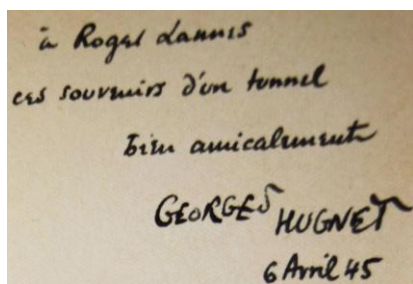 à Roger Lannes
ces souvenirs d'un tunnel
bien amicalement
GEORGES HUGNET
6 Avril 45